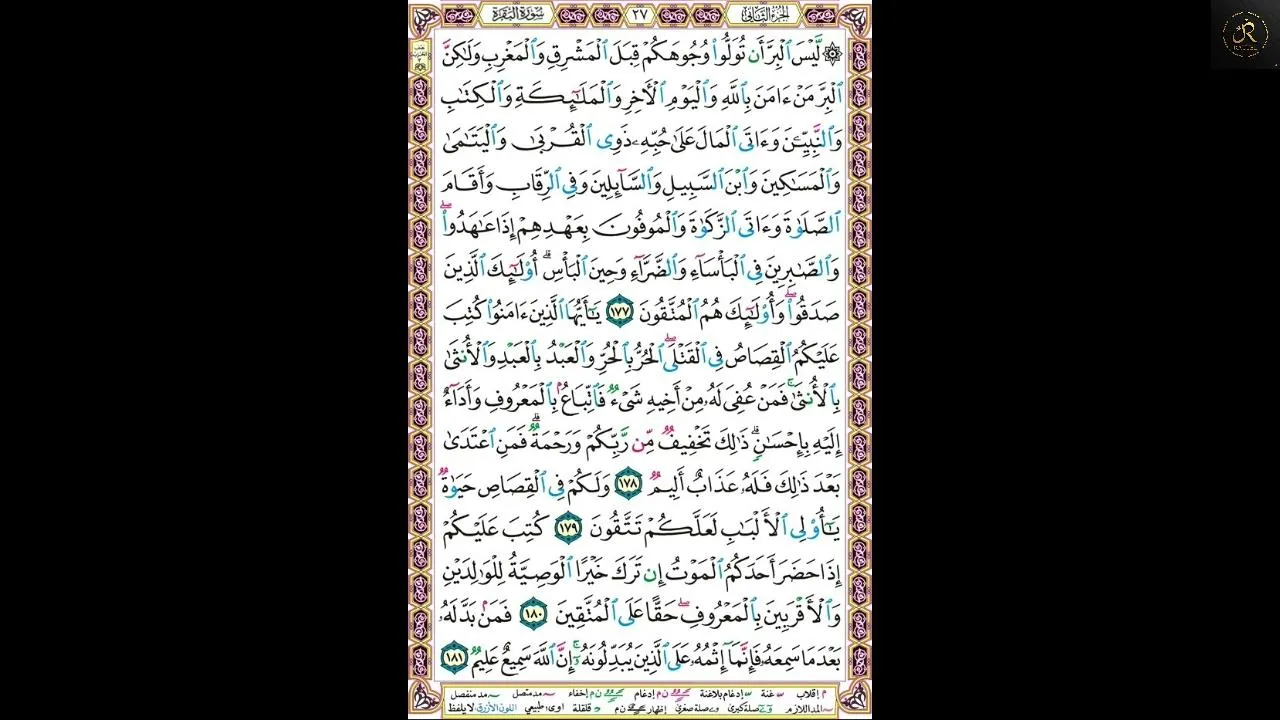 الجزء الثاني ٢٧ سورة البقرة
۞ لَّيۡسَ ٱلۡبِرَّ أَن تُوَلُّواْ وُجُوهَكُمۡ قِبَلَ ٱلۡمَشۡرِقِ وَٱلۡمَغۡرِبِ وَلَٰكِنَّ
ٱلۡبِرَّ مَنۡ ءَامَنَ بِٱللَّهِ وَٱلۡيَوۡمِ ٱلۡأٓخِرِ وَٱلۡمَلَٰٓئِكَةِ وَٱلۡكِتَٰبِ
وَٱلنَّبِيِّـۧنَ وَءَاتَى ٱلۡمَالَ عَلَىٰ حُبِّهِۦ ذَوِي ٱلۡقُرۡبَىٰ وَٱلۡيَتَٰمَىٰ
وَٱلۡمَسَٰكِينَ وَٱبۡنَ ٱلسَّبِيلِ وَٱلسَّآئِلِينَ وَفِي ٱلرِّقَابِ وَأَقَامَ
ٱلصَّلَوٰةَ وَءَاتَى ٱلزَّكَوٰةَ وَٱلۡمُوفُونَ بِعَهۡدِهِمۡ إِذَا عَٰهَدُواْۖ
وَٱلصَّٰبِرِينَ فِي ٱلۡبَأۡسَآءِ وَٱلضَّرَّآءِ وَحِينَ ٱلۡبَأۡسِۗ أُوْلَٰٓئِكَ ٱلَّذِينَ
صَدَقُواْۖ وَأُوْلَٰٓئِكَ هُمُ ٱلۡمُتَّقُونَ ١٧٧ يَٰٓأَيُّهَا ٱلَّذِينَ ءَامَنُواْ كُتِبَ
عَلَيۡكُمُ ٱلۡقِصَاصُ فِي ٱلۡقَتۡلَىۖ ٱلۡحُرُّ بِٱلۡحُرِّ وَٱلۡعَبۡدُ بِٱلۡعَبۡدِ وَٱلۡأُنثَىٰ
بِٱلۡأُنثَىٰۚ فَمَنۡ عُفِيَ لَهُۥ مِنۡ أَخِيهِ شَيۡءٞ فَٱتِّبَاعُۢ بِٱلۡمَعۡرُوفِ وَأَدَآءٌ
إِلَيۡهِ بِإِحۡسَٰنٖۗ ذَٰلِكَ تَخۡفِيفٞ مِّن رَّبِّكُمۡ وَرَحۡمَةٞۗ فَمَنِ ٱعۡتَدَىٰ
بَعۡدَ ذَٰلِكَ فَلَهُۥ عَذَابٌ أَلِيمٞ ١٧٨ وَلَكُمۡ فِي ٱلۡقِصَاصِ حَيَوٰةٞ
يَٰٓأُوْلِي ٱلۡأَلۡبَٰبِ لَعَلَّكُمۡ تَتَّقُونَ ١٧٩ كُتِبَ عَلَيۡكُمۡ
إِذَا حَضَرَ أَحَدَكُمُ ٱلۡمَوۡتُ إِن تَرَكَ خَيۡرًا ٱلۡوَصِيَّةُ لِلۡوَٰلِدَيۡنِ
وَٱلۡأَقۡرَبِينَ بِٱلۡمَعۡرُوفِۖ حَقًّا عَلَى ٱلۡمُتَّقِينَ ١٨٠ فَمَنۢ بَدَّلَهُۥ
بَعۡدَ مَا سَمِعَهُۥ فَإِنَّمَآ إِثۡمُهُۥ عَلَى ٱلَّذِينَ يُبَدِّلُونَهُۥٓۚ إِنَّ ٱللَّهَ سَمِيعٌ عَلِيمٞ ١٨١
م إقلاب غنة إدغام بلاغنة ن م إدغام ن م إخفاء مد متصل مد منفصل
المد اللازم صلة كبرى صلة صغرى إظهار ن م قلقلة اوى: طبيعي اللون الأزرق لا يلفظ